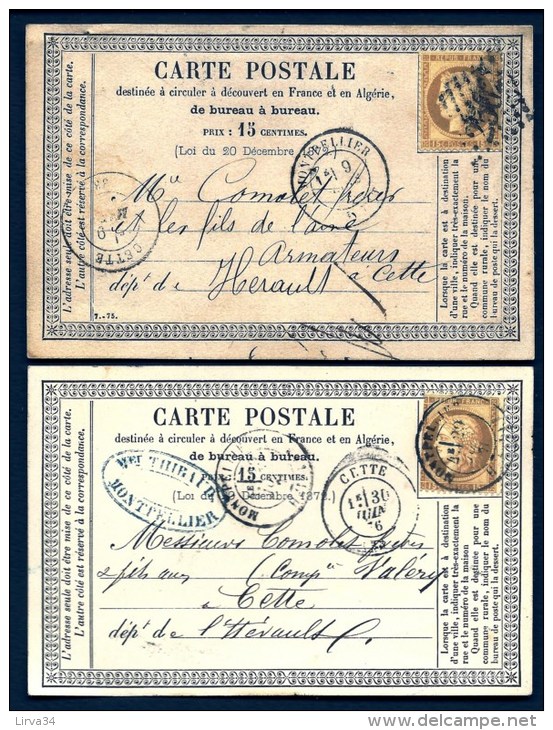 CARTE POSTALE
destinée à circuler à découvert en France et en Algérie,
de bureau à bureau.
PRIX : 15 CENTIMES.
(Loi du 20 Décembre
L'adresse seule doit être mise de ce côté de la carte.
L'autre côté est réservé à la correspondance.
MONTPELLIER
CETTE
REPUB FRANC
Comolet frères
et les fils de l'aîné
Armateurs
à Cette
dépt de Herault
7.-75.
Lorsque la carte est à destination
d'une ville, indiquer très-exactement la
rue et le numéro de la maison.
Quand elle est destinée pour une
commune rurale, indiquer le nom du
bureau de poste qui la dessert.
CARTE POSTALE
destinée à circuler à découvert en France et en Algérie,
de bureau à bureau.
15 CENTIMES.
(Loi du Décembre 1872.)
L'adresse seule doit être mise de ce côté de la carte.
L'autre côté est réservé à la correspondance.
MONTPELLIER
CETTE
30
JUIN
76
Messieurs Comolet frères
& fils aîné (Compie Valéry
à Cette
dépt de l'Hérault
Lorsque la carte est à destination
d'une ville, indiquer très-exactement la
rue et le numéro de la maison.
Quand elle est destinée pour une
commune rurale, indiquer le nom du
bureau de poste qui la dessert.
Lirva34
www.delcampe.net